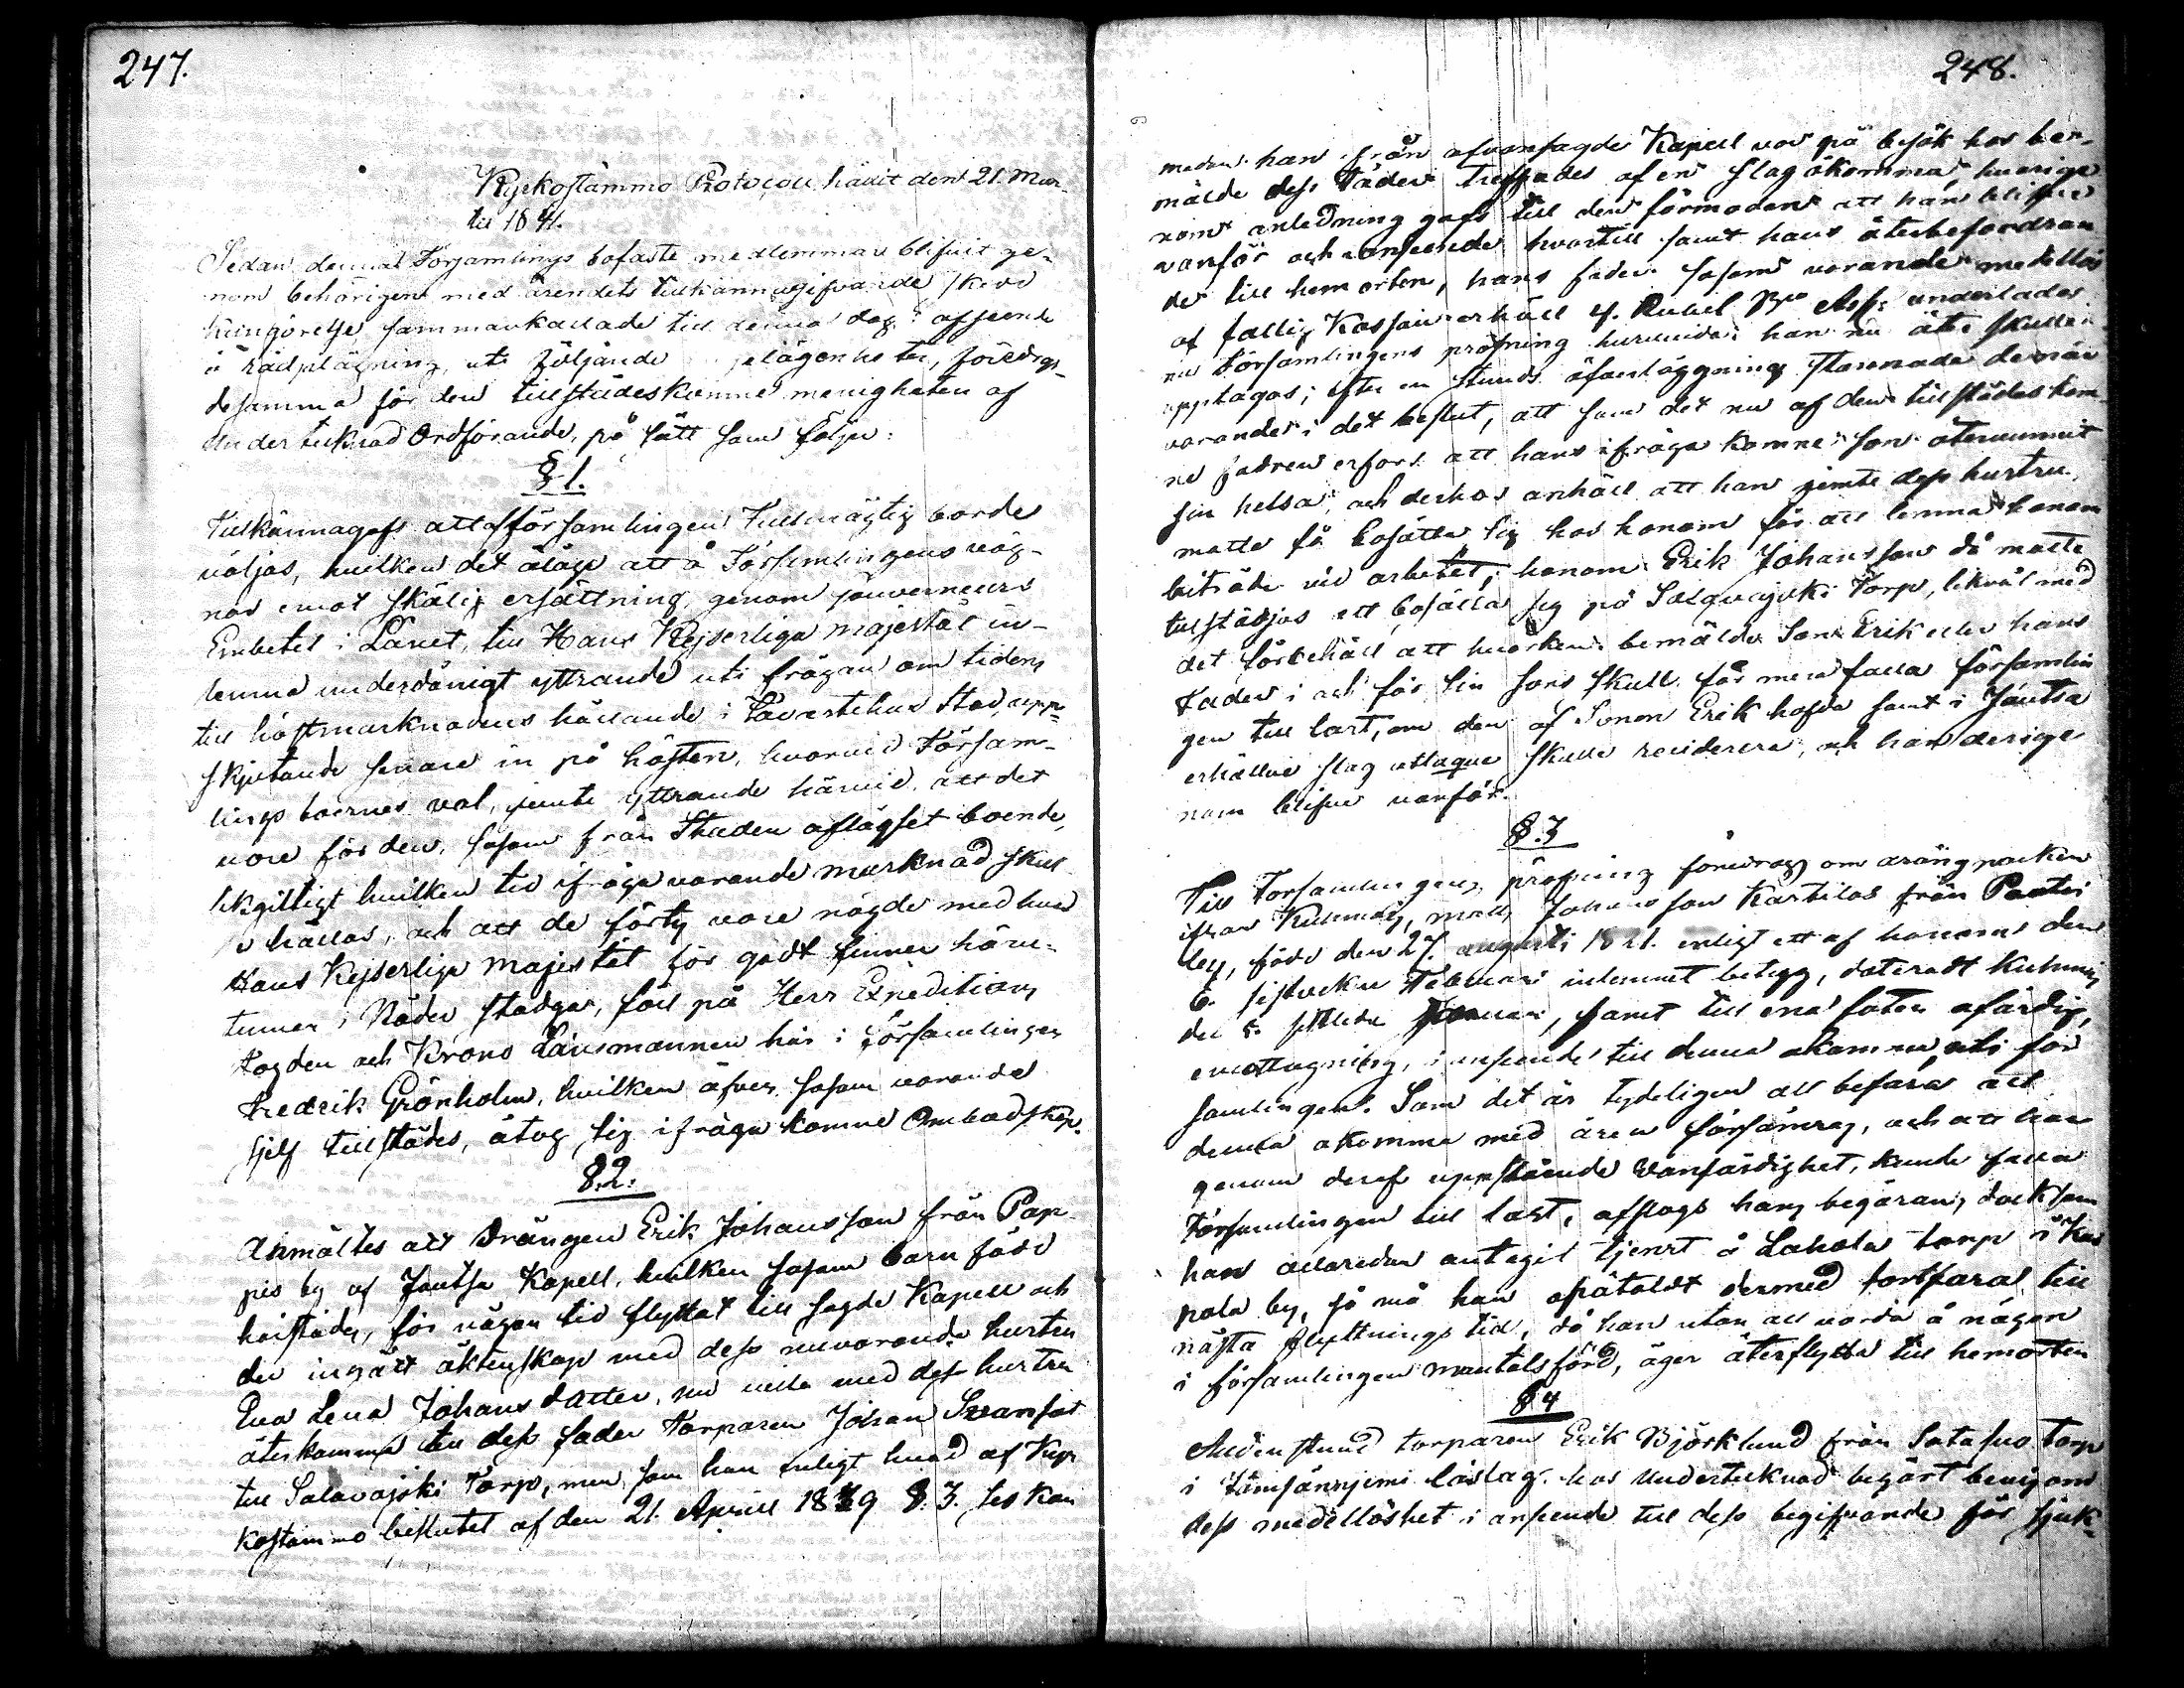 247.
Kyrkostämmo Protocoll hållit den 21. Mar-
tii 1841.
Sedan denna Församlings bofaste medlemmar blifvit ge-
nom behörigen med ärendets tillkännagifvande skedd
kungörelse sammankallade till denna dag i afseende
å rådplägning, uti följande  ⁠ lägenheter, föredrogs
desamma för den tillstädeskomne menigheten af
undertecknad Ordförande, på sätt som följer:
§ 1.
Tillkännagafs att af församlingen Fullmägtig borde
väljas, hvilken det ålåge att å Församlingens väg-
nar emot skälig ersättning, genom Gouverneurs
Embetet i Länet, till Hans Kejserliga Majestät in-
lemna underdånigt yttrande uti frågan om tidens
till höstmarknadens hållande i Tavastehus Stad, upp-
skjutande senare in på hösten, hvarvid Försam-
lings boernes val, jemte yttrande härvid, att det
vore för den, såsom från Staden aflägset boende,
likgiltigt hvilken tid ifrågavarande marknad skul-
le hållas, och att de förty vore nögde med hvad
Hans Kejserliga Majestät för godt finner häru-
tinnan i Nåder stadga, föll på Herr Expeditions
Fogden och Krono Länsmannen här i Församlingen
Fredrik Grönholm, hvilken äfven såsom varande
sjelf tillstädes, åtog sig ifrågakomne Ombudskap.
§ 2.
Anmältes att Drängen Erik Johansson från Pap-
pis by af Jautsa Kapell, hvilken såsom barn född
härstädes, för någon tid flyttat till sagde Kapell och
der ingått äktenskap med dess nuvarande hustru
Eva Lena Johansdotter, nu ville med dess hustru
återkomma till dess fader Torparen Johan
till Salavajski Torp, men som han enligt hvad af Kyr-
kostämmo beslutet af den 21. April 1839 §. 3.
248.
medan han från ofvansagde Kapell var på besök hos bem-
mälde dess Fader träffades af en slagåkomma, hvarige-
nom anledning gafs till den förmodan att han blifver
vanför och i anseende hvartill samt hans återbefordran-
de till hemorten, hans fader såsom varande medellös
af fattig Kassan erhöll 4. Rubel B:co Ass: underlades
nu Församlingens pröfning huruvida han nu åter skulle
upptagas; efter en stunds öfverläggning stannade de när-
varande i det beslut, att som det nu af den tillstädeskom-
ne fadren erfors att hans ifrågakomne son återvunnit
sin helsa, och derhos anhåll att han jemte dess hustru
matte få bosätta sig hos honom för att lemna honom
biträde vid arbetet, honom Erik Johansson då matte
tillstädjas att bosätta sig på Salavajski Torp, likväl med
det förbehåll att hvarken bemälde Son Erik eller hans
Fader i och för sin sons skull får mera falla församlin-
gen till last, om den af Sonen Erik hafda samt i Jäutsa
erhållne slag attaque skulle recidivera, och han derige-
nom blifva vanför.
§.3
Till Församlingens pröfning föredrogs om drängpojken
ifrån Kuhmois, Matts Johansson Karbilas från Paatis
by, född den 27. augusti 1821. enligt ett af honom den
6. sistvekne Februari inlemnat betygg, dateradt Kuhmois
den 8. sistlidne Januari, samt till ena foten ofärdig,
emottagning, i anseende till denna åkomma, uti för-
samlingen. Som det är tydeligen att befara att
denna åkomma med åren försämras, och att han
genom deraf uppstående vanfärdighet, kunde falla
Församlingen till last, afslogs hans begäran, dock som
han allaredan antagit tjenst å Lahola torp i Kar-
pala by, så må han opåtaldt dermed fortfara till
nästa flyttningstid, då han utan att varda å någon
i församlingen mantalsförd, äger återflytta till hemorten
§ 4
Alldenstund torparen Erik Björklund från Satasuo Torp
i Jämsänniemi låslag hos Undertecknad begärt bevis om
dess medellöshet i anseende till dess begifvande för sjuk-